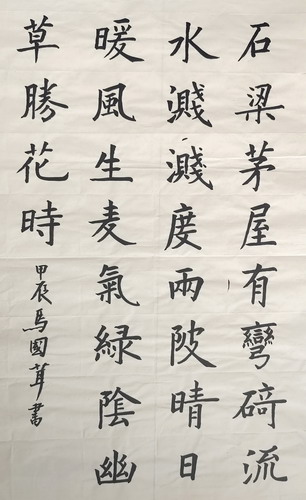 石梁茅屋有彎碕流
水濺濺度兩陂晴日
暖風生麦氣緑陰幽
草勝花時
甲辰馬國茸書